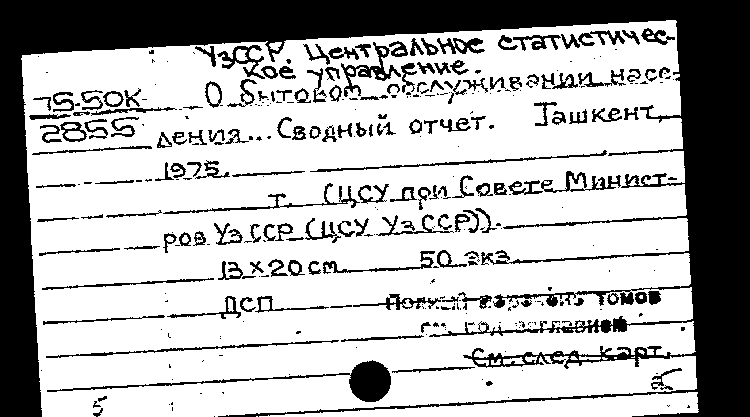 УзССР. Центральное статистичес-
кое управление.
75-50К О бытовом обслуживании насе-
2855 ления... Сводный отчет. Ташкент,
1975.
т. (ЦСУ при Совете Минист-
ров УзССР (ЦСУ УзССР)).
13×20 см 50 экз.
ДСП Полный перечень томов
см. под заглавием
См. след. карт.
5